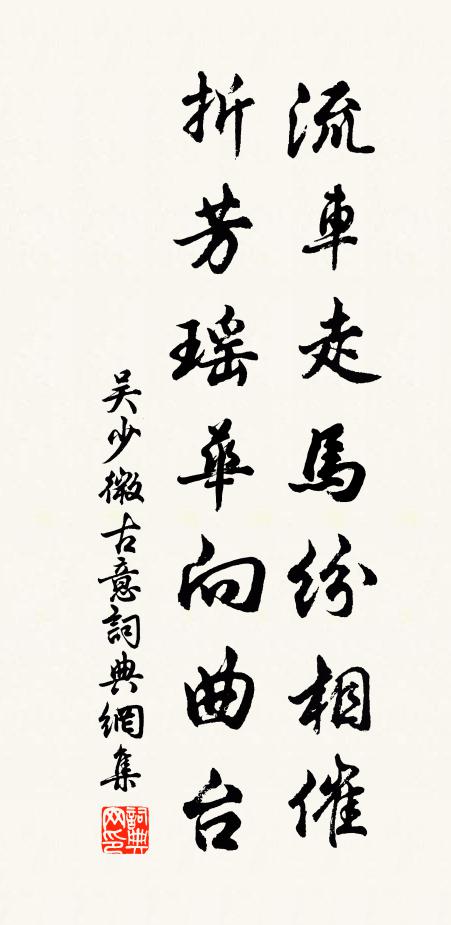 流車走馬紛相催
折芳瑶華向曲台
吴少微古意詞典網集
詞典网印